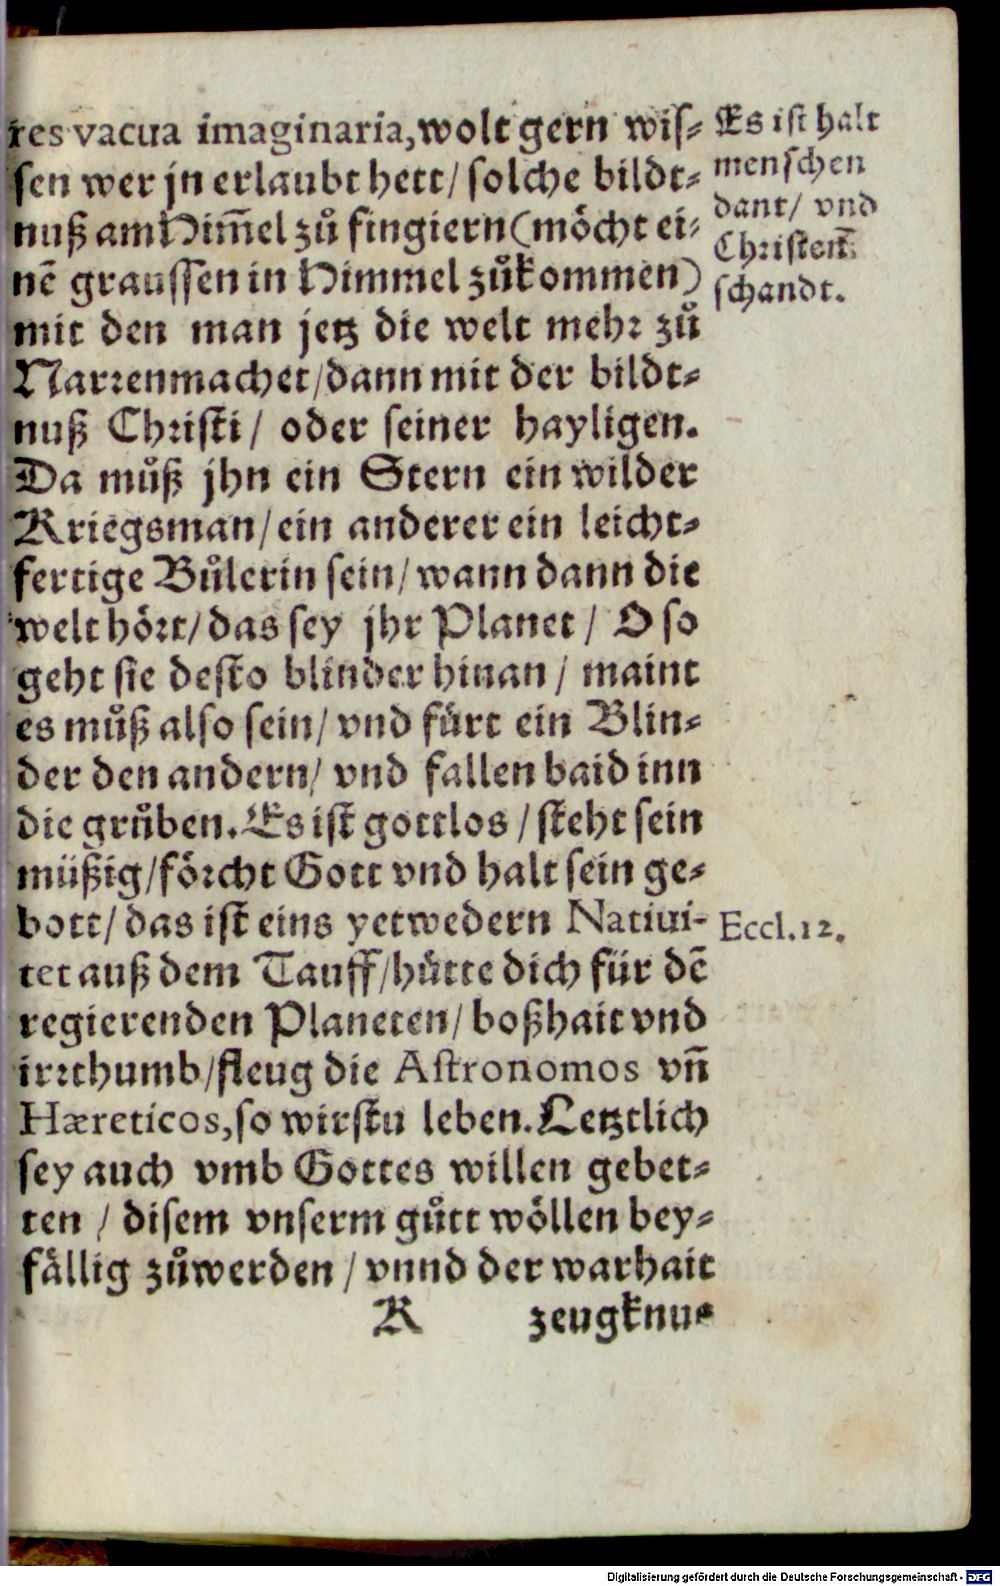 res vacua imaginaria, wolt gern wis⸗
sen wer jn erlaubt hett/ solche bildt⸗
nuß am Him̃el zů fingiern (möcht ei⸗
nē graussen in Himmel zůkommen)
mit den man jetz die welt mehr zů
Narrenmachet/ dann mit der bildt⸗
nuß Christi/ oder seiner hayligen.
Da můß jhn ein Stern ein wilder
Kriegsman/ ein anderer ein leicht⸗
fertige Bůlerin sein/ wann dann die
welt hört/ das sey jhr Planet/ O so
geht sie desto blinder hinan/ maint
es můß also sein/ vnd fürt ein Blin⸗
der den andern/ vnd fallen baid inn
die grůben. Es ist gottlos/ steht sein
müßig/ förcht Gott vnd halt sein ge⸗
bott/ das ist eins yetwedern Natiui-
tet auß dem Tauff/ hütte dich für dē
regierenden Planeten/ boßhait vnd
irrthumb/ fleug die Astronomos vñ
Hæreticos, so wirstu leben. Letztlich
sey auch vmb Gottes willen gebet⸗
ten/ disem vnserm gůtt wöllen bey⸗
fällig zůwerden/ vnnd der warhait
K zeugknu⸗
Es ist halt
menschen
dant/ vnd
Christeñ
schandt.
Eccl. 12.
Digitalisierung gefördert durch die Deutsche Forschungsgemeinschaft - DFG